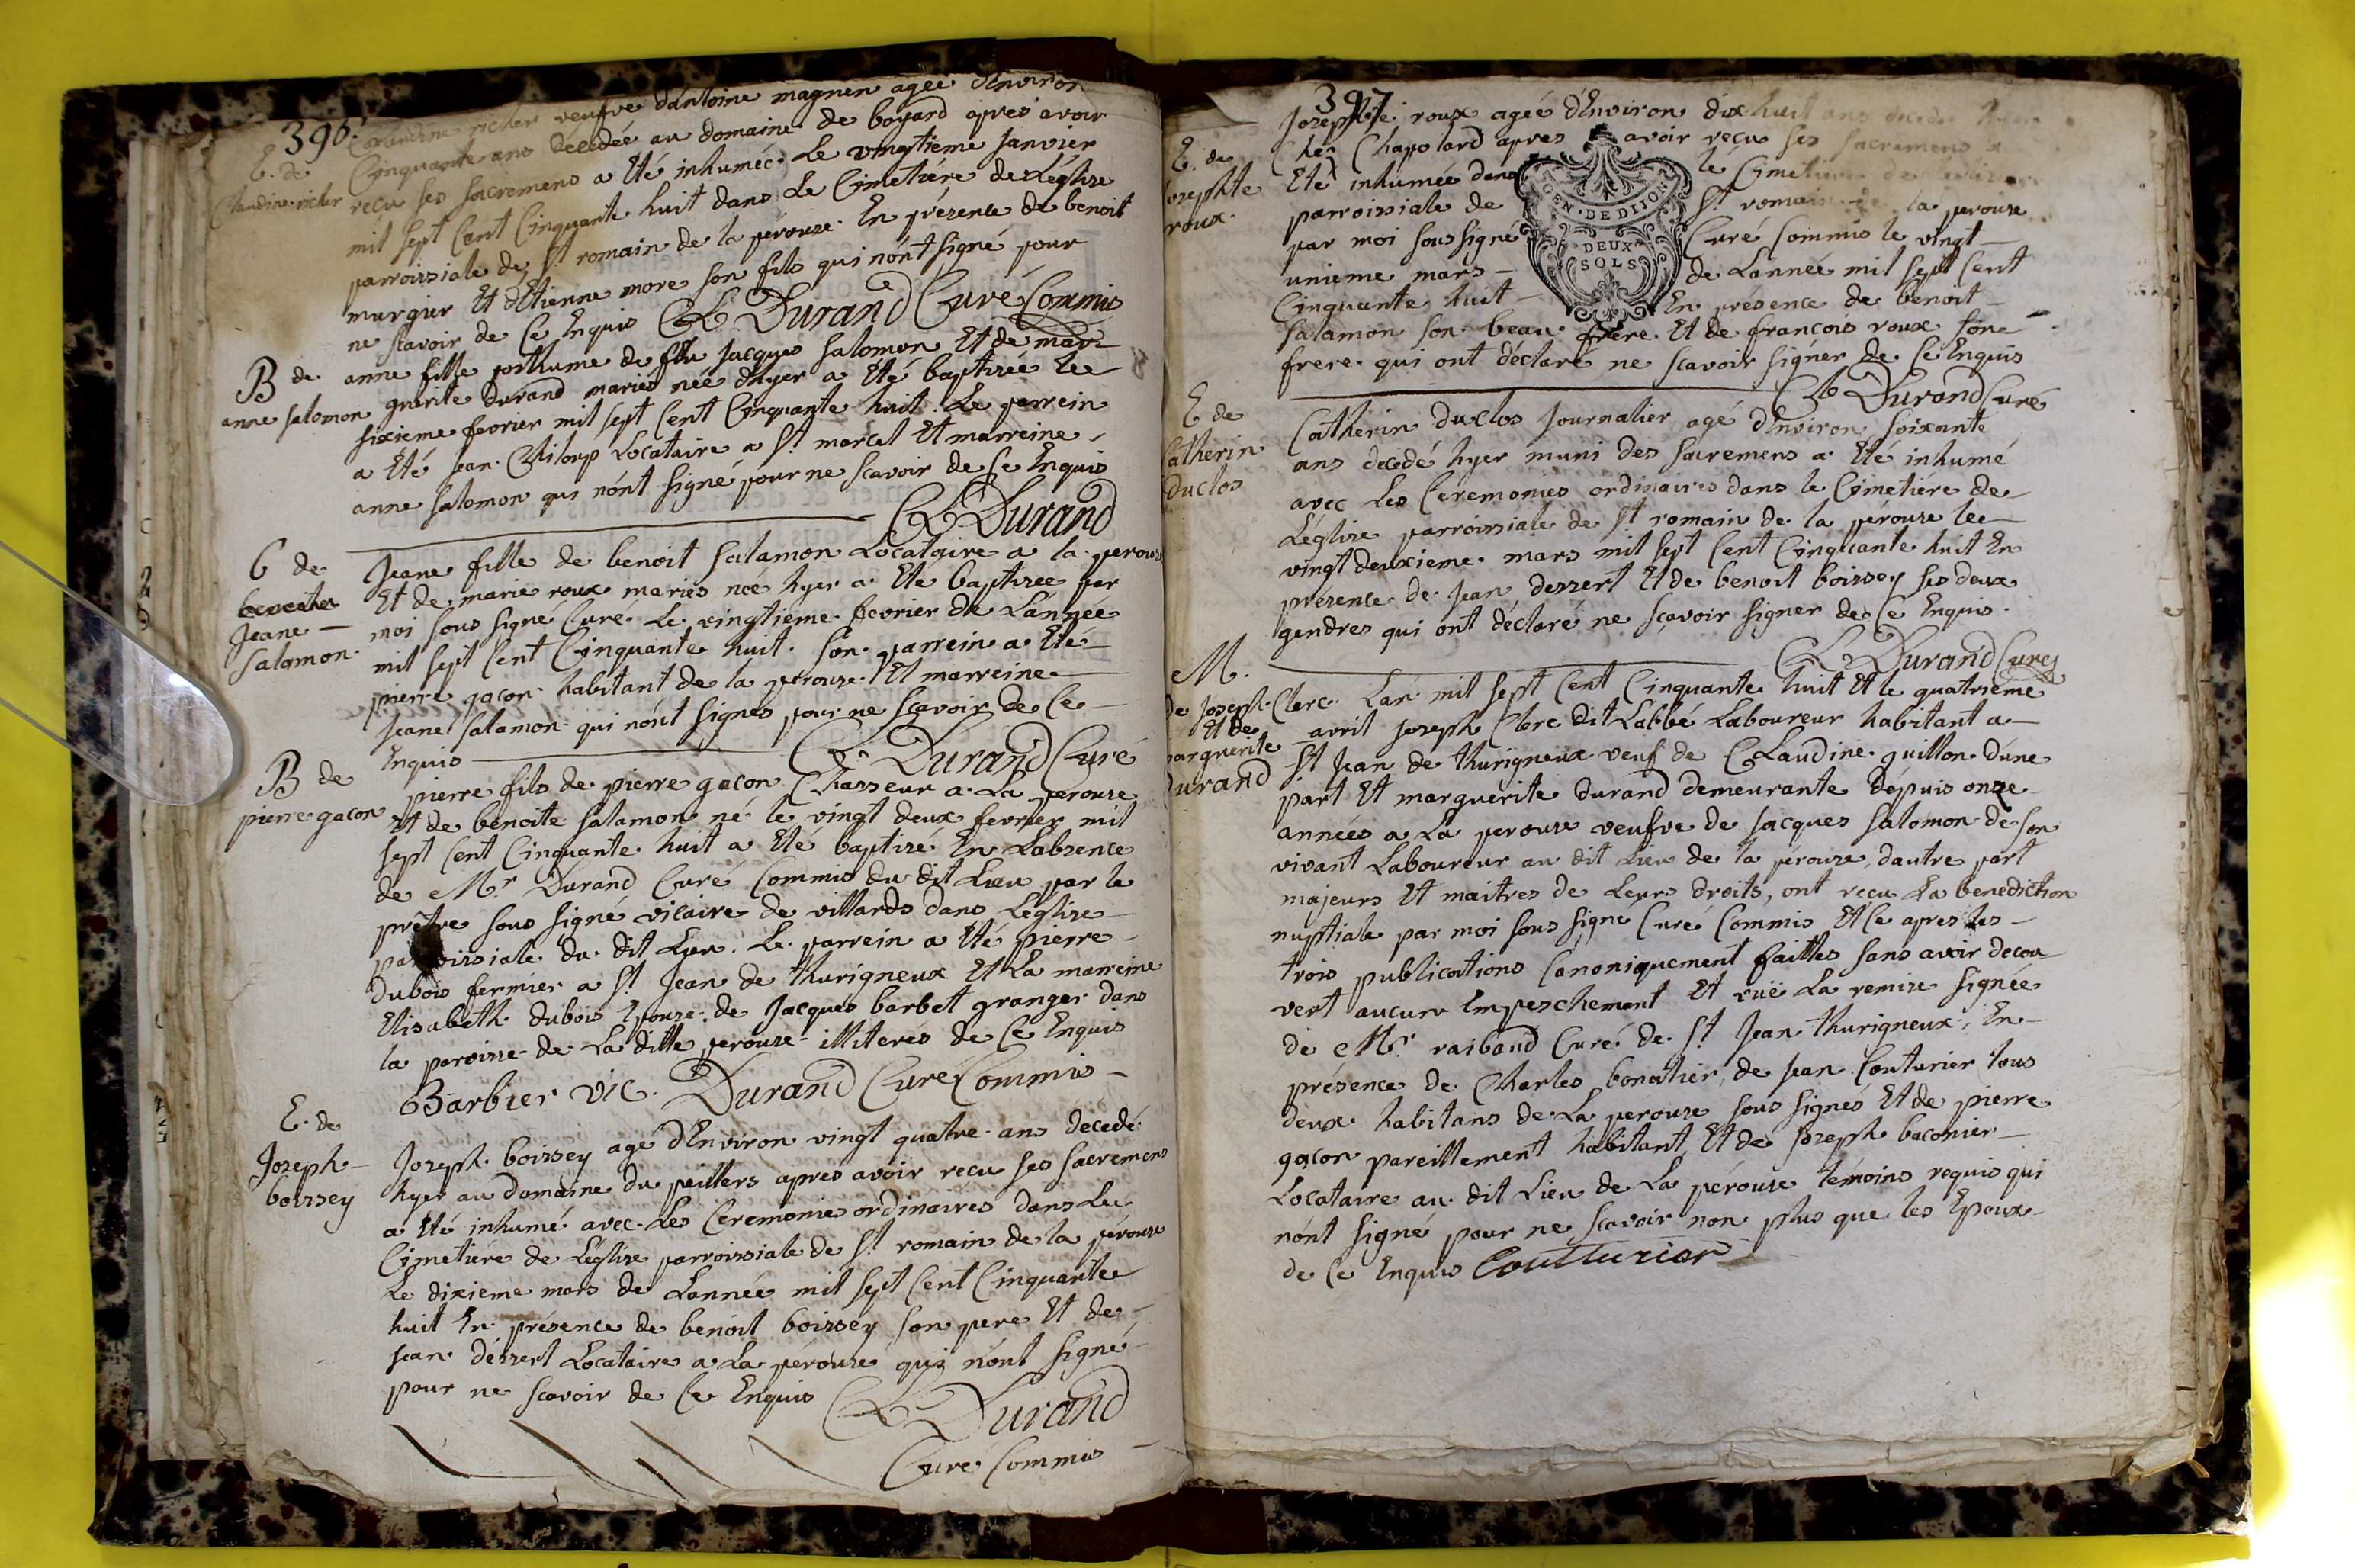 396.
E. de
Claudine richer
Claudine richer veufve d'antoine magnen agee d'Environ
Cinquante ans décédée au domaine de boyard apres avoir
reçu ses sacremens a Eté inhumée Le vingtieme Janvier
mil sept Cent Cinquante huit dans Le Cimetiére de L'église
parroissiale de St romain de la pérouze En présence de benoit
murgier Et d'Etienne more son fils qui n'ont signé pour
ne scavoir de Ce Enquis Durand Curé Commis
B de
anne salomon
anne fille posthume de feu Jacques salomon Et de mar
guerite Durand mariés née d'hyer a Eté baptizée le
sixieme fevrier mil sept Cent Cinquante huit. Le parrein
a Eté Jean Locataire a St marcel Et marreine
anne salomon qui n'ont signé pour ne scavoir de Ce Enquis
Durand
B de
Jeane
salamon
Jeane fille de benoit salamon Locataire a la perouze
Et de marie roux mariés née hyer a Eté baptizée par
moi sous signé Curé Le vingtieme fevrier de L'année
mil sept Cent Cinquante huit. son parrein a Eté
pierre gacon habitant de la perouze Et marreine
Jeane salamon qui n'ont signés pour ne scavoir de Ce
Enquis Durand Curé
B de
pierre gacon
pierre fils de pierre gacon Chasseur a La perouze
Et de benoite salamon né le vingt deux fevrier mil
sept Cent Cinquante huit a Eté baptizé En L'absence
de Mr Durand Curé Commis du dit Lieu par le
prêtre sous signé vicaire de villards dans L'église
parroissiale du dit Lieu. Le parrein a Eté pierre
Dubois fermier a St Jean de thurigneux Et La marreine
Elisabeth dubois Epouze de Jacques barbet granger dans
la paroisse de La ditte perouze illiterés de Ce Enquis
Barbier vic. Durand Curé Commis
E. de
Jozeph
boissey
Jozeph boissey agé d'Environ vingt quatre ans décedé
hyer au domaine du peillers apres avoir recu ses sacremens
a Eté inhumé avec Les Ceremonies ordinaires dans Le
Cimetiére de L'église parroissiale de St romain de la pérouze
Le dixieme mars de L'année mil sept Cent Cinquante
huit En présence de benoit boissey son pere Et de
Jean dézzert Locataire a La pérouze qui n'ont signé
pour ne scavoir de Ce Enquis
Durand
Curé Commis
397
E. de
Jozephte
roux.
Jozephte roux agée d'Environ dix huit ans decedée hyer
Chez Chapolard apres avoir reçu ses sacremens a
Eté inhumée dans le Cimetiere de L'église
parroissiale de St romain de la perouze
par moi sous signé Curé Commis le vingt
unieme mars de L'année mil sept Cent
Cinquante huit En présence de benoit
salamon son beau frére Et de françois roux son
frere qui ont déclaré ne scavoir signer de Ce Enquis
Durand Curé
GEN·DE DIJON
DEUX
SOLS
E de
Catherin
duclos
Catherin duclos Journalier agé d'Environ soixante
ans decedé hyer muni des sacremens a Eté inhumé
avec Les Ceremonies ordinaires dans le Cimetiére de
L'église parroissiale de St romain de la pérouze le
vingt deuxieme mars mil sept Cent Cinquante huit En
présence de Jean dezzert Et de benoit boissey ses deux
gendres qui ont déclaré ne sçavoir signer de Ce Enquis.
Durand Curé
M.
de Joseph Clerc
Et de
marguerite
Durand
L'an mil sept Cent Cinquante huit Et le quatriéme
avril Jozeph Clerc dit L'abbé Laboureur habitant a
St Jean de thurigneux veuf de Claudine guillon d'une
part Et marguerite Durand demeurante dépuis onze
années a La perouze veufve de Jacques salomon de son
vivant Laboureur au dit Lieu de la pérouze, d'autre part
majeurs Et maitres de Leurs droits, ont reçu La benediction
nuptiale par moi sous signé Curé Commis Et Ce apres les
trois publications Canoniquement faittes sans avoir decou
vert aucun Empeschement Et vuë La remise signée
de Mr raiband Curé de St Jean thurigneux, En
présence de Charles bonatier, de Jean Couturier tous
deux habitans de La perouze sous signés Et de pierre
gacon pareillement habitant, Et de Jozeph baconier
Locataire au dit Lieu de La pérouze témoins requis qui
n'ont signé pour ne scavoir non plus que les Epoux
de Ce Enquis Coutturier